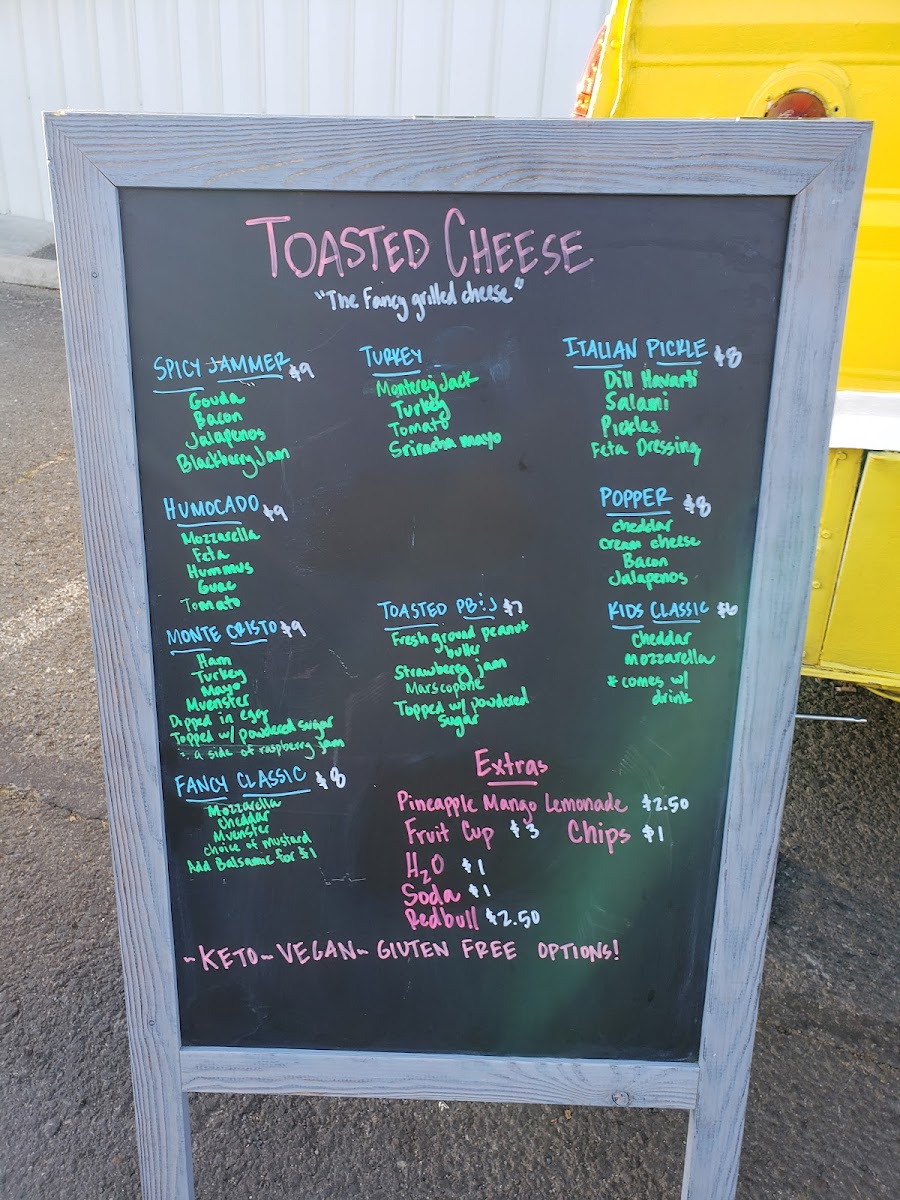 TOASTED CHEESE
"The Fancy grilled cheese"
SPICY JAMMER $9
Gouda
Bacon
Jalapenos
Blackberry Jam
HUMOCADO $9
Mozzarella
Feta
Hummus
Guac
Tomato
MONTE CRISTO $9
Ham
Turkey
Mayo
Muenster
Dipped in egg
Topped w/ powdered sugar
a side of raspberry jam
FANCY CLASSIC $8
Mozzarella
cheddar
Muenster
choice of mustard
Add Balsamic for $1
TURKEY
Monterey Jack
Turkey
Tomato
Sriracha mayo
TOASTED PB&J $7
Fresh ground peanut
butter
Strawberry jam
Marscopone
Topped w/ powdered
sugar
ITALIAN PICKLE $8
Dill Havarti
Salami
Pickles
Feta Dressing
POPPER $8
cheddar
cream cheese
Bacon
Jalapenos
KIDS CLASSIC $6
cheddar
mozzarella
* comes w/
drink
Extras
Pineapple Mango Lemonade $2.50
Fruit Cup $3 Chips $1
H2O $1
Soda $1
Redbull $2.50
~KETO~VEGAN~GLUTEN FREE OPTIONS!